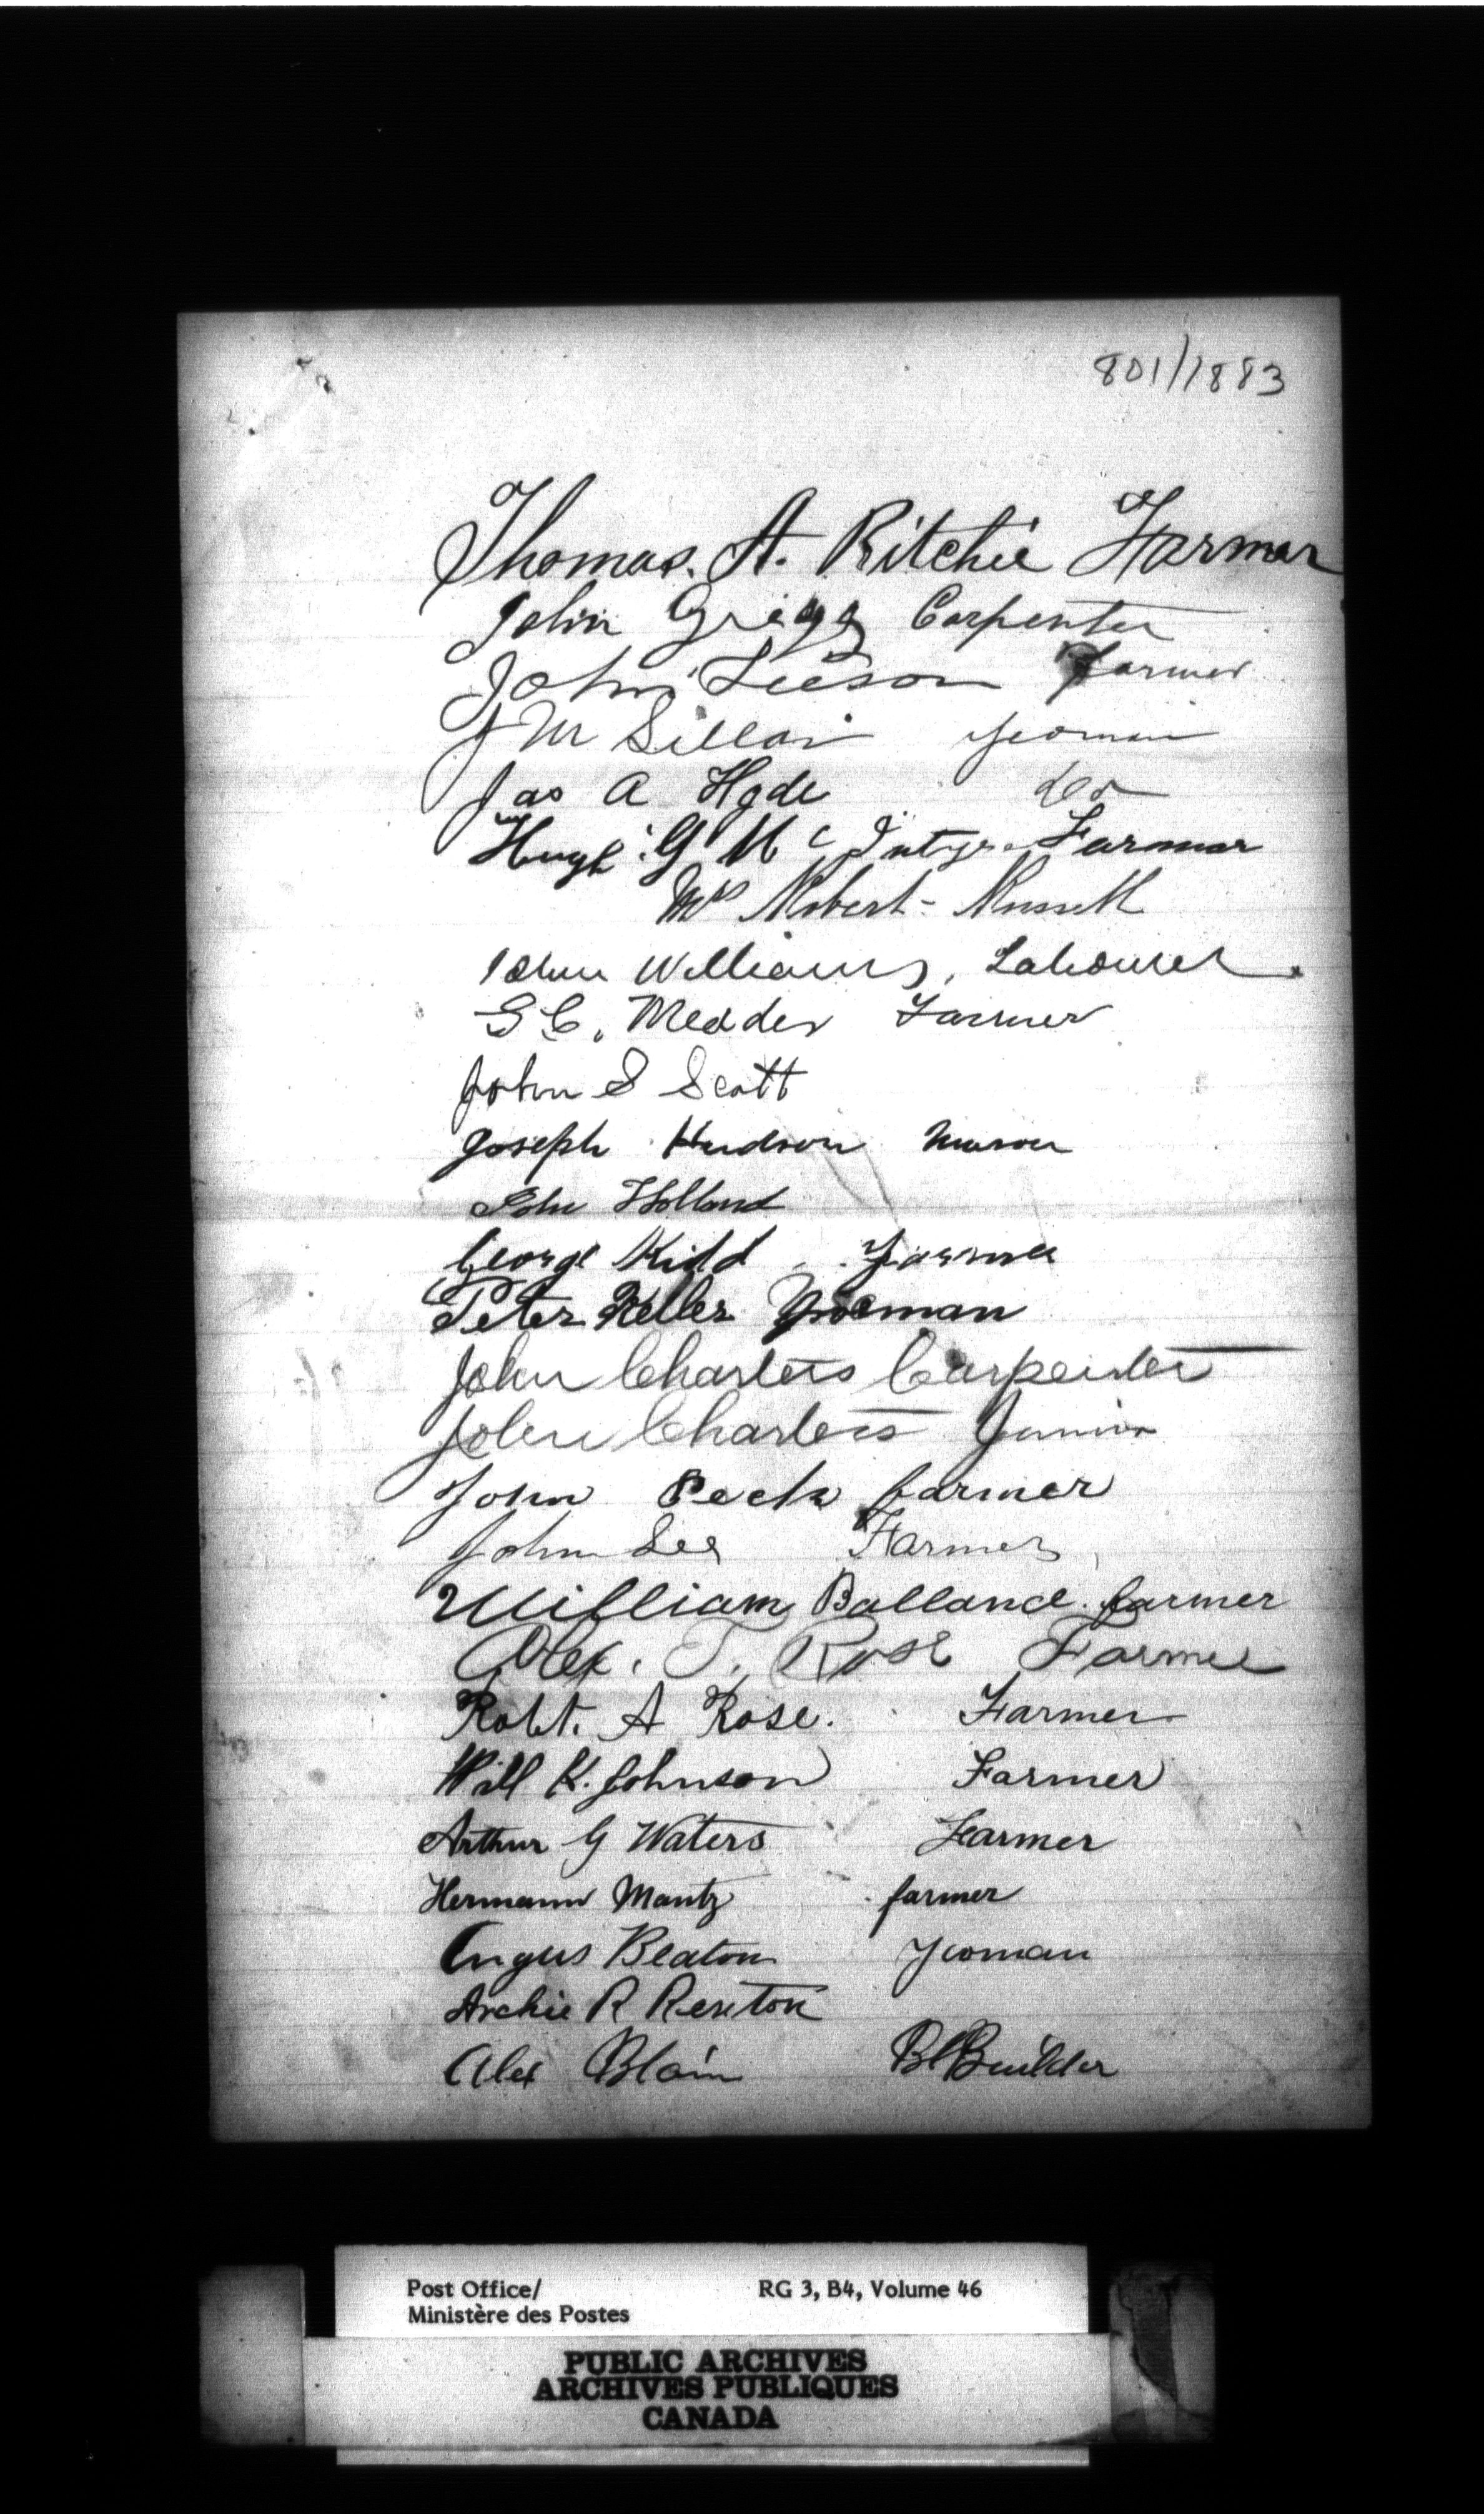 801/1883
Thomas. A. Ritchie Farmar
John Grigg Carpenter
John Leeson Farmer
J M Sillar yeoman
Jas A Hyde do
Hugh G Mc Intyre Farmar
Mrs Robert Russell
John Williams, Labourer.
G C. Meader Farmer
John S Scott
Joseph Hudson Mason
John Holland
George Kidd Farmer
Peter Keller Yoeman
John Charters Carpenter
John Charters Junior
John Peck farmer
John Lee Farmer
William Balland farmer
Alex. T. Rose Farmer
Robt. A Rose. Farmer
Will K. Johnson Farmer
Arthur G Waters Farmer
Hermann Mantz farmer
Angus Beaton Yeoman
Archie R Renton
Alex Blain Builder
Post Office/ RG 3, B4, Volume 46
Ministère des Postes
PUBLIC ARCHIVES
ARCHIVES PUBLIQUES
CANADA